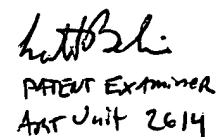 PATENT EXAMINER
ART Unit 2614